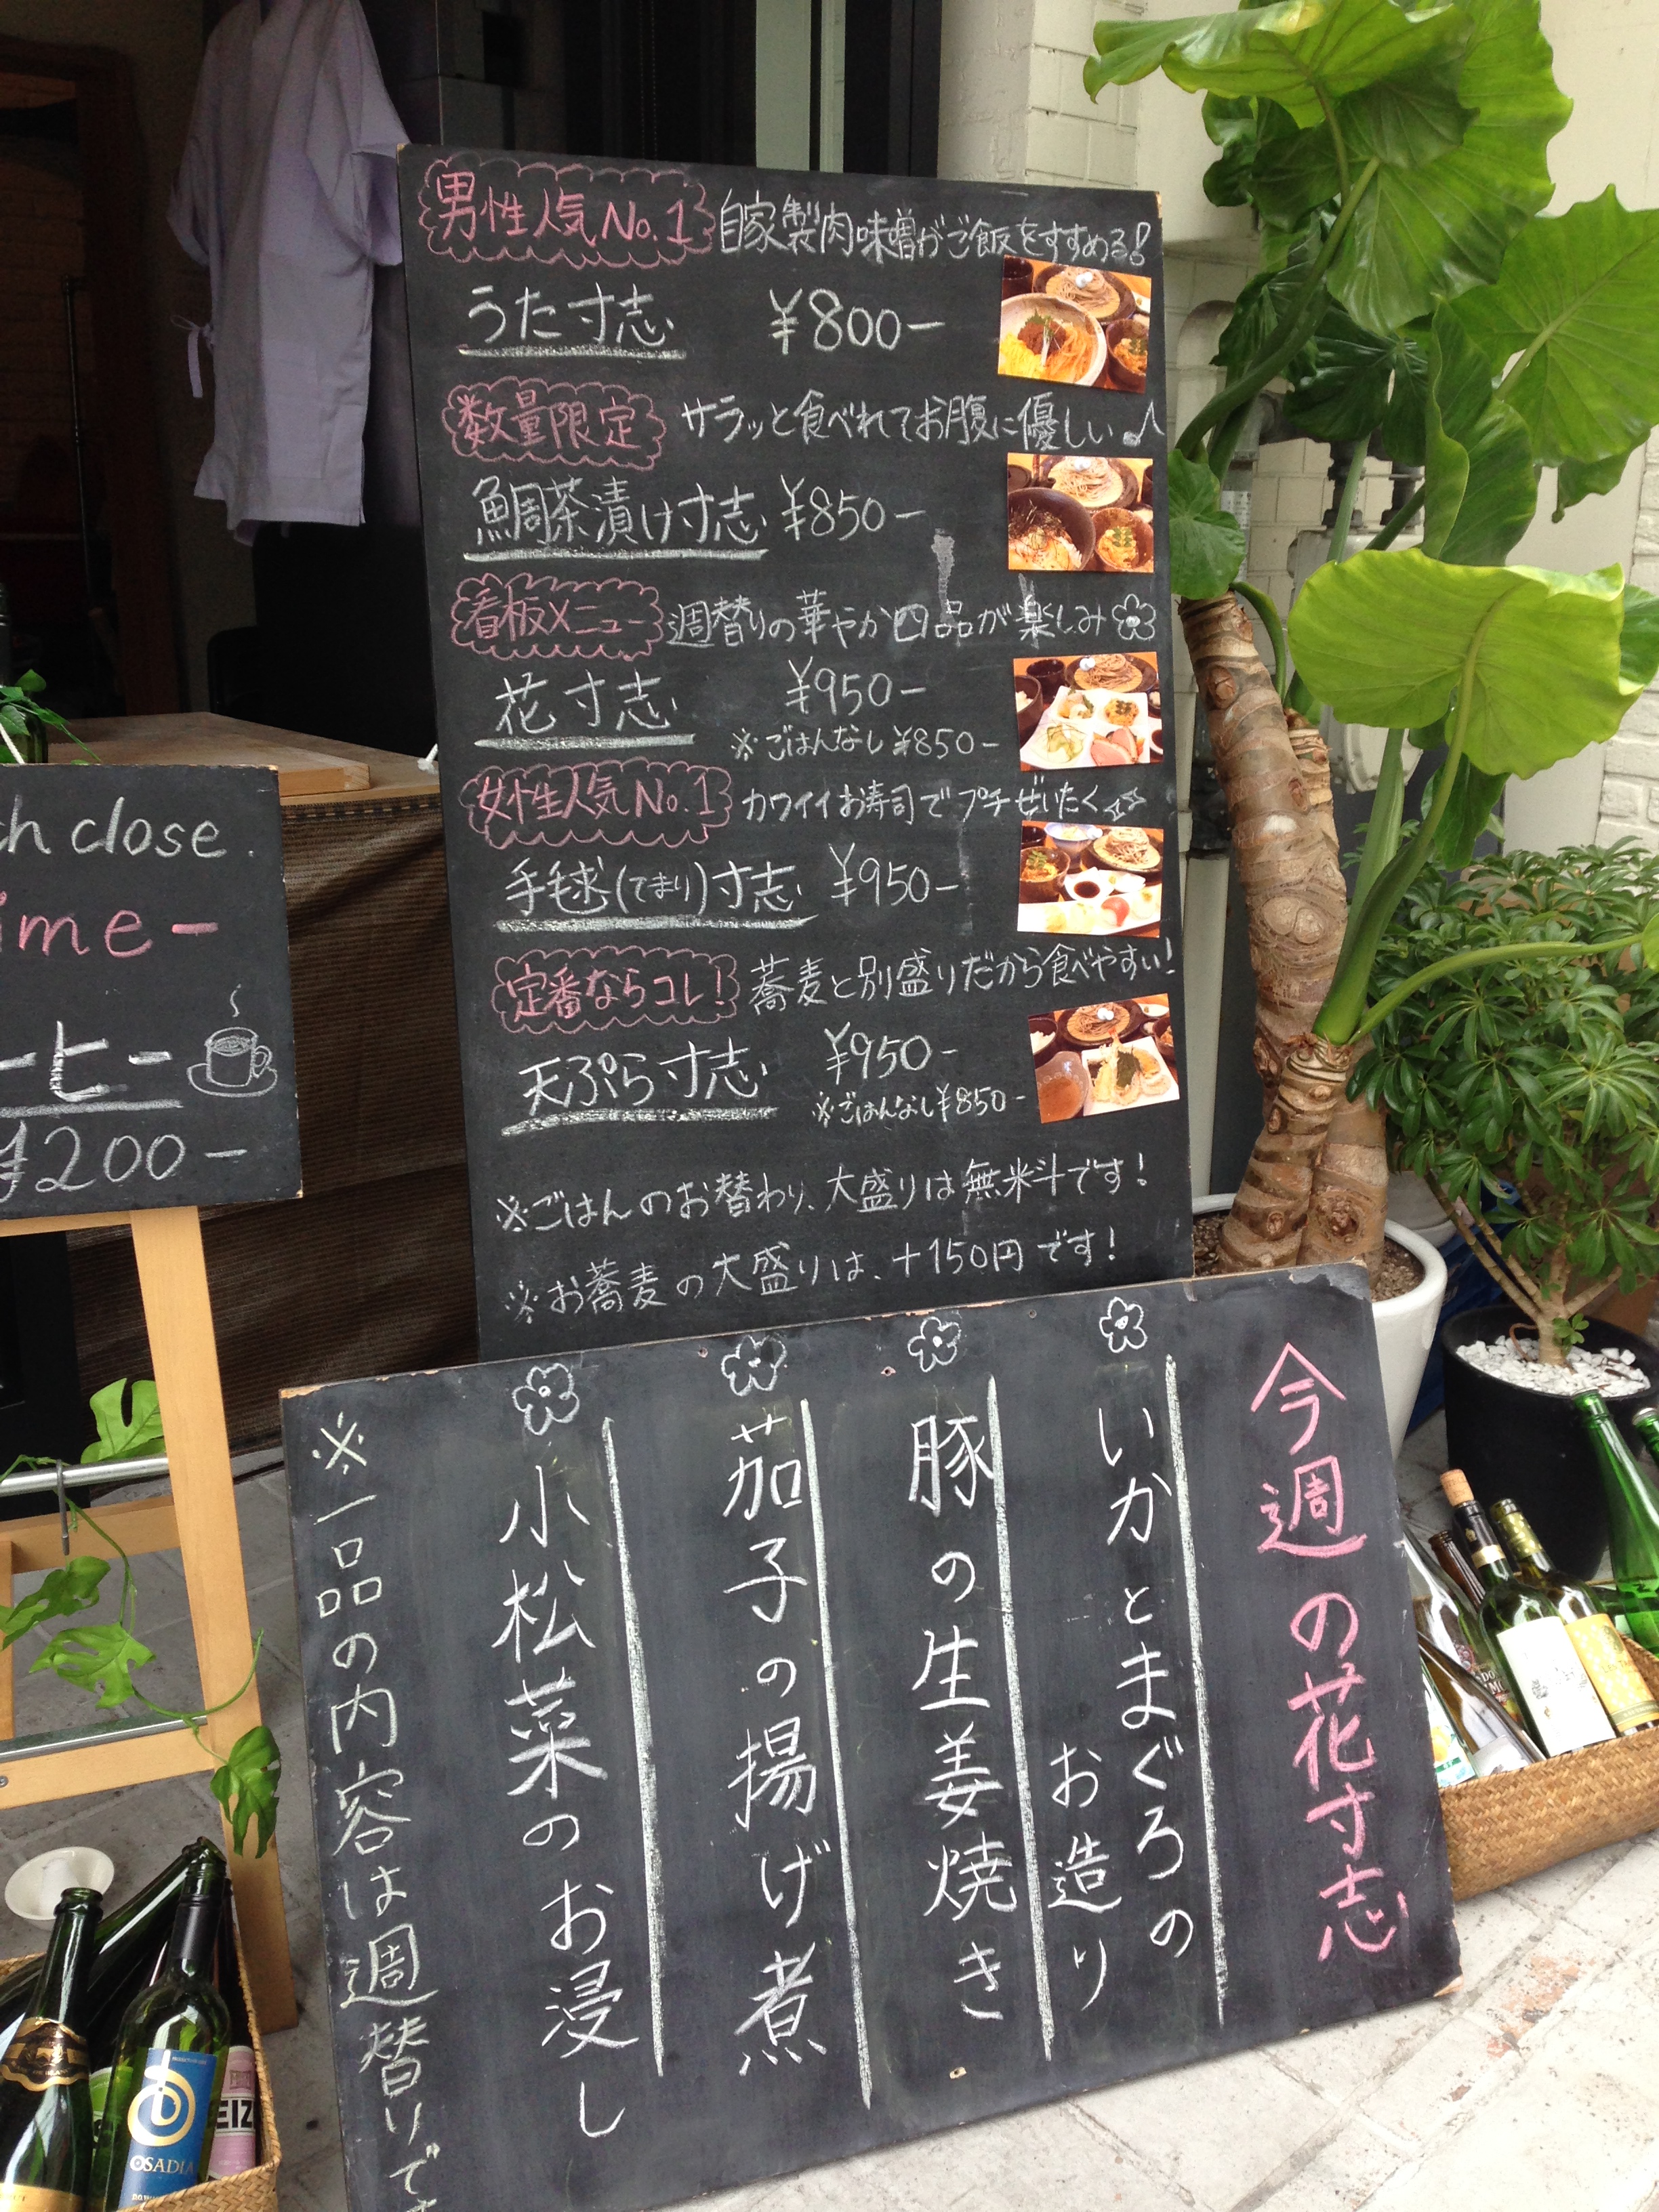 男性人気No.1 自家製肉味噌がご飯をすすめる!
うた寸志 ¥800-
数量限定 サラッと食べれてお腹に優しい♪
鯛茶漬け寸志 ¥850-
看板メニュー 週替りの華やか四品が楽しみ
花寸志 ¥950-
※ごはんなし ¥850-
女性人気No.1 カワイイお寿司でプチぜいたく
手毬(てまり)寸志 ¥950-
定番ならコレ! 蕎麦と別盛りだから食べやすい!
天ぷら寸志 ¥950-
※ごはんなし¥850-
※ごはんのお替わり、大盛りは無料です!
※お蕎麦の大盛りは、+150円です!
今週の花寸志
いかとまぐろの
お造り
豚の生姜焼き
茄子の揚げ煮
小松菜のお浸し
※一品の内容は週替りで
ch close.
ime-
ーヒー
¥200-
OSADIA
EIZ